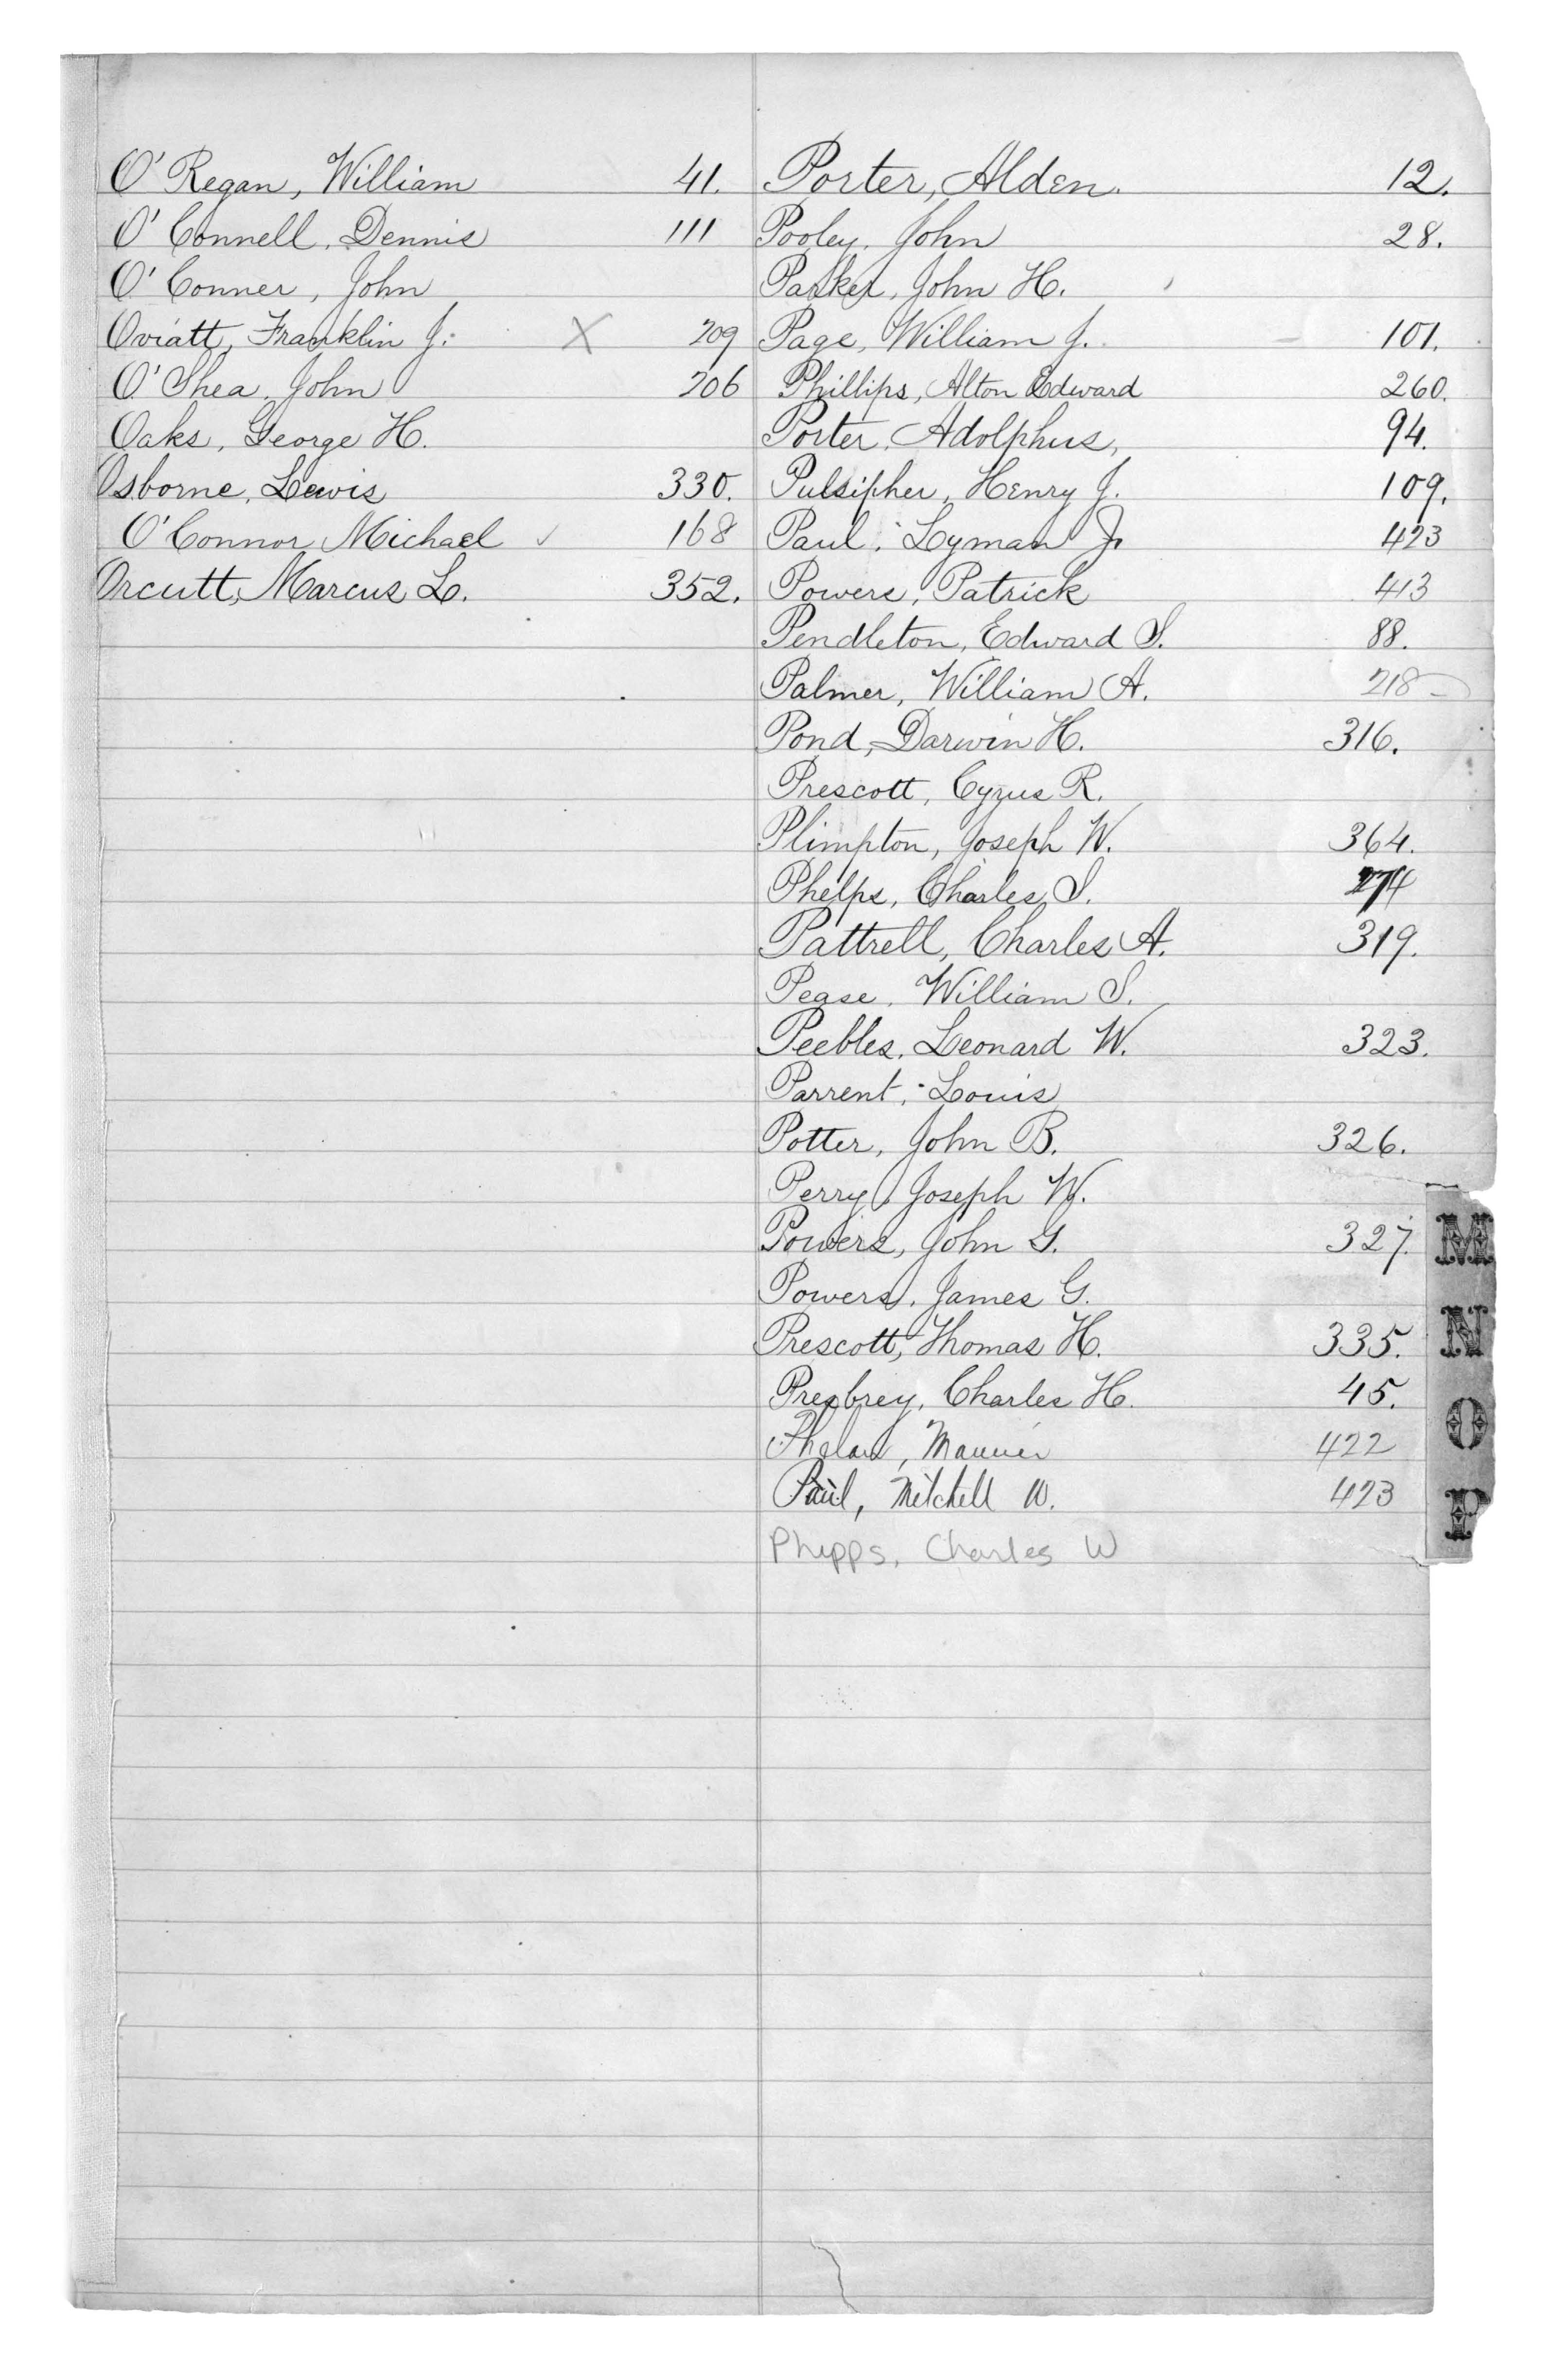 O'Regan, William 41.
O'Connell, Dennis 111
O'Conner, John
Oviatt, Franklin J. X 209
O'Shea, John 206
Oaks, George H.
Osborne, Lewis 330.
O'Connor Michael ✓ 168
Orcutt, Marcus L. 352.
Porter, Alden. 12.
Pooley, John 28.
Parker, John H.
Page, William J. 101.
Phillips, Alton Edward 260.
Porter, Adolphus, 94.
Pulsipher, Henry J. 109.
Paul, Lyman J. 423
Powers, Patrick 413
Pendleton, Edward S. 88.
Palmer, William A. 218
Pond, Darwin H. 316.
Prescott, Cyrus R.
Plimpton, Joseph W. 364.
Phelps, Charles S. 274
Pattrell, Charles A. 319.
Pease, William S.
Peebles, Leonard W. 323.
Parrent, Louis
Potter, John B. 326.
Perry, Joseph W.
Powers, John G. 327.
Powers, James G.
Prescott, Thomas H. 335.
Presbrey, Charles H. 45.
Phelan, 422
Paul, Mitchell W. 423
Phipps, Charles W
M
N
O
P